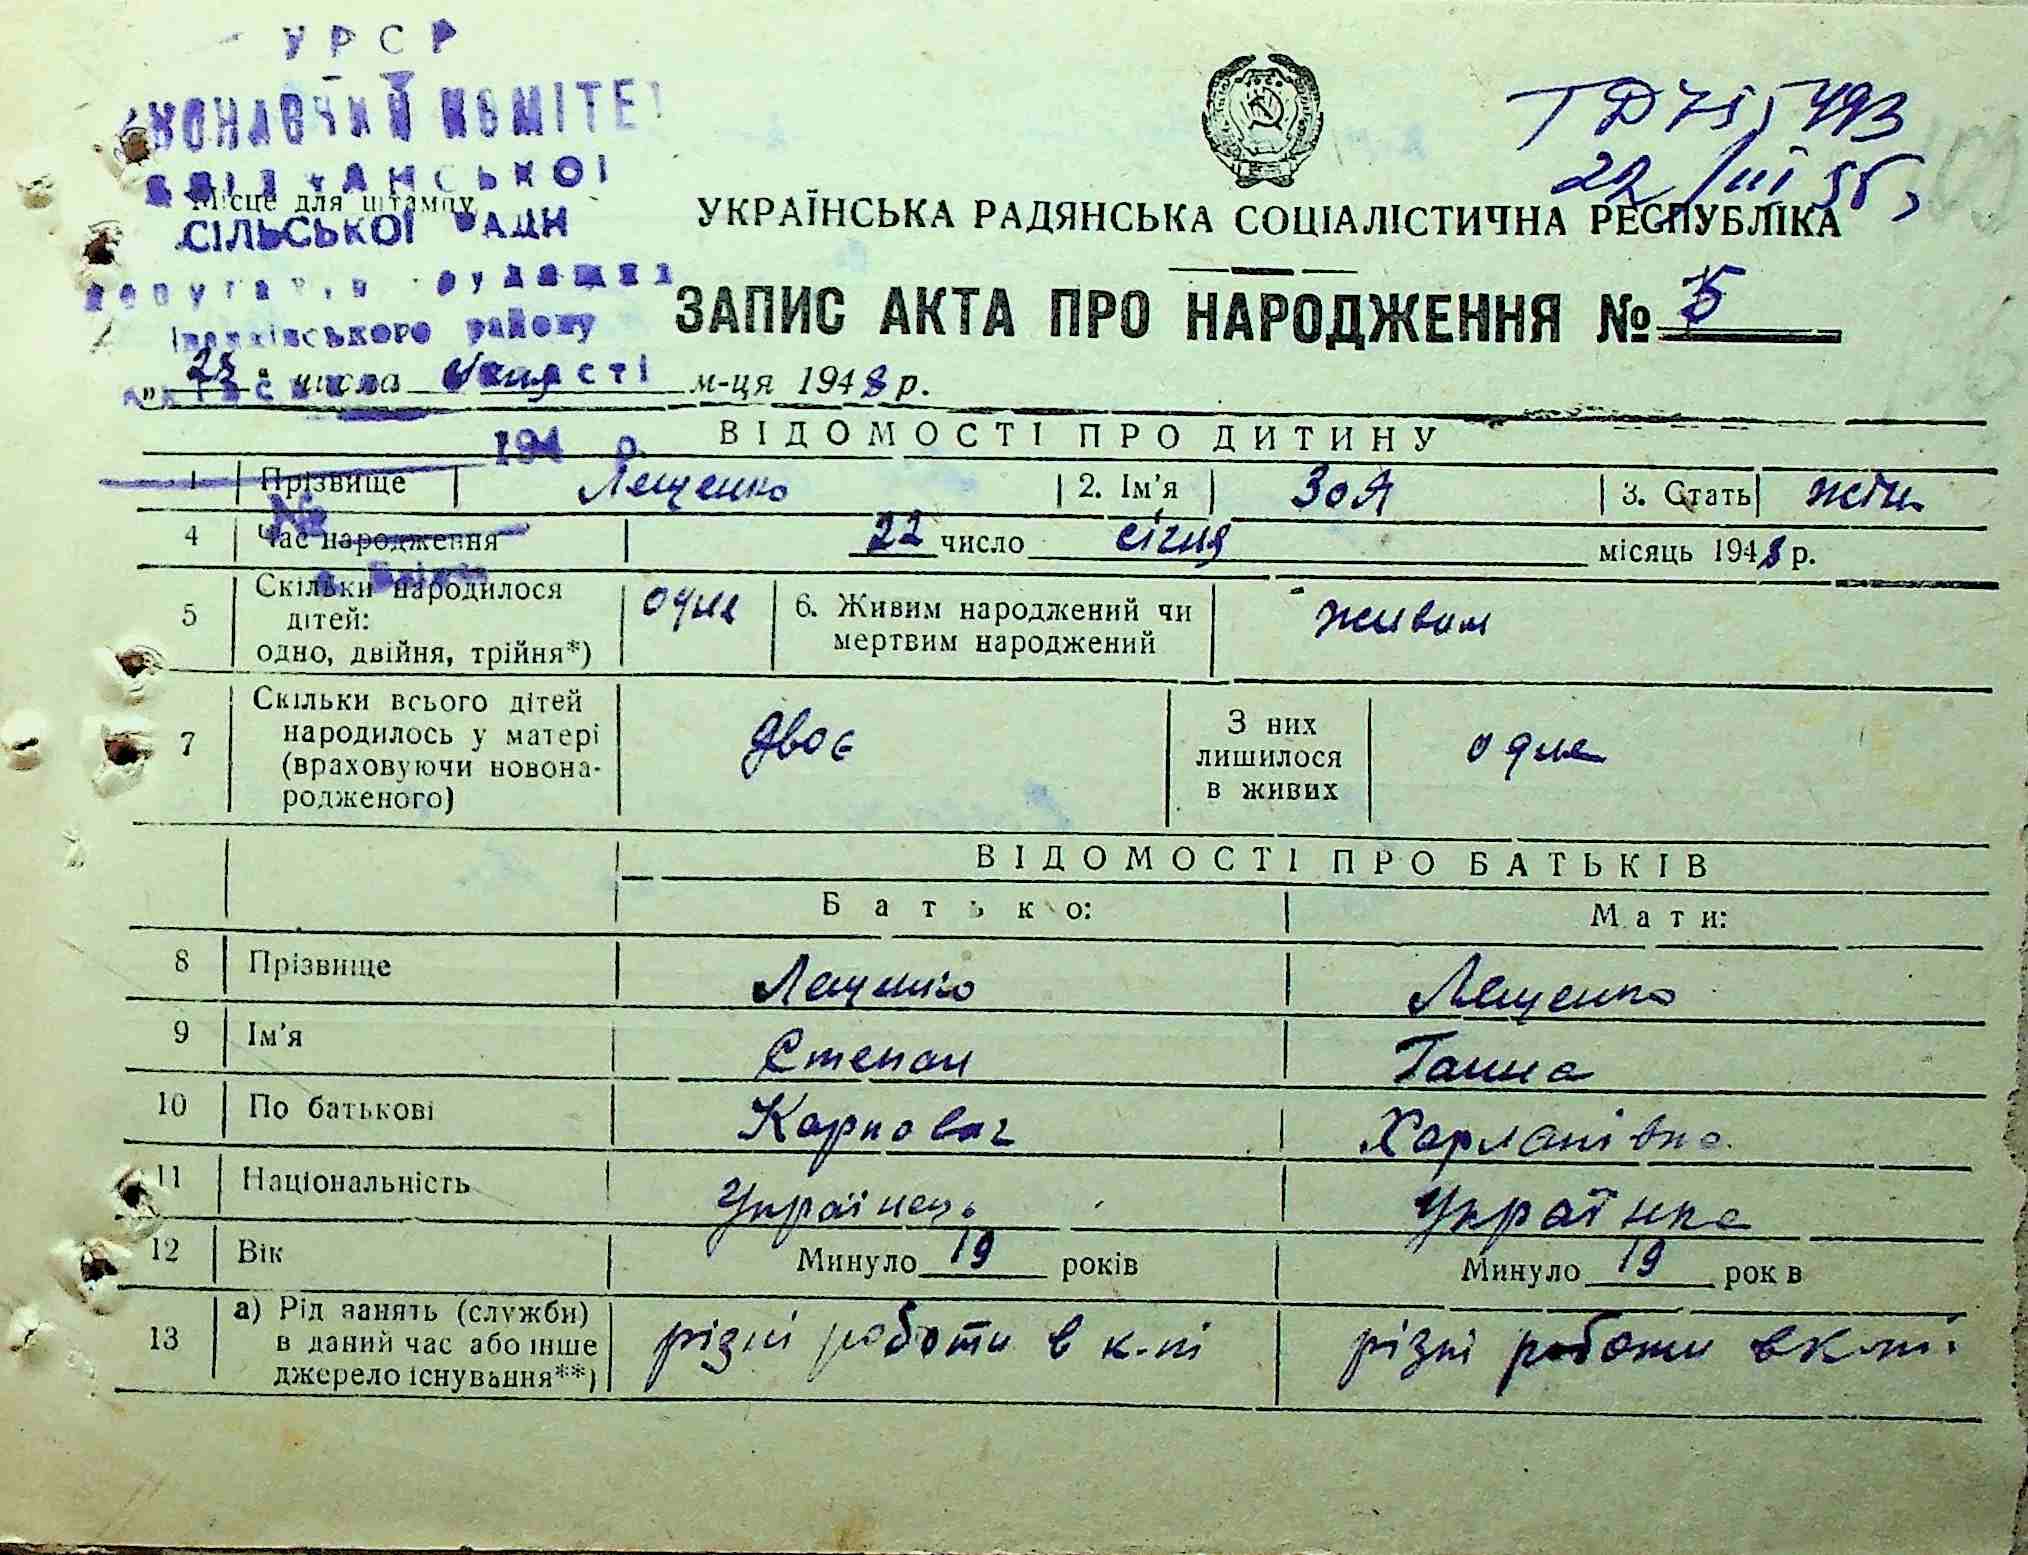 УРСР
КОМІТЕ
СІЛЬСЬКОЇ РАДИ
Місце для штампу
району
194 р.
№
22/III 55
УКРАЇНСЬКА РАДЯНСЬКА СОЦІАЛІСТИЧНА РЕСПУБЛІКА
ЗАПИС АКТА ПРО НАРОДЖЕННЯ № 5
числа м-ця 1948 р.
ВІДОМОСТІ ПРО ДИТИНУ
1 Прізвище Лещенко 2. Ім’я Зоя 3. Стать жін.
4 Час народження 22 число січня місяць 1948 р.
5 Скільки народилося дітей: одно, двійня, трійня*) одне 6. Живим народжений чи мертвим народжений живим
7 Скільки всього дітей народилось у матері (враховуючи новонародженого) двоє З них лишилося в живих одне
ВІДОМОСТІ ПРО БАТЬКІВ
Батько: Мати:
8 Прізвище Лещенко Лещенко
9 Ім’я Степан Ганна
10 По батькові Карпович Харлапівна
11 Національність Українець Українка
12 Вік Минуло 19 років Минуло 19 років
13 а) Рід занять (служби) в даний час або інше джерело існування**) різні роботи в к-пі різні роботи в к-пі